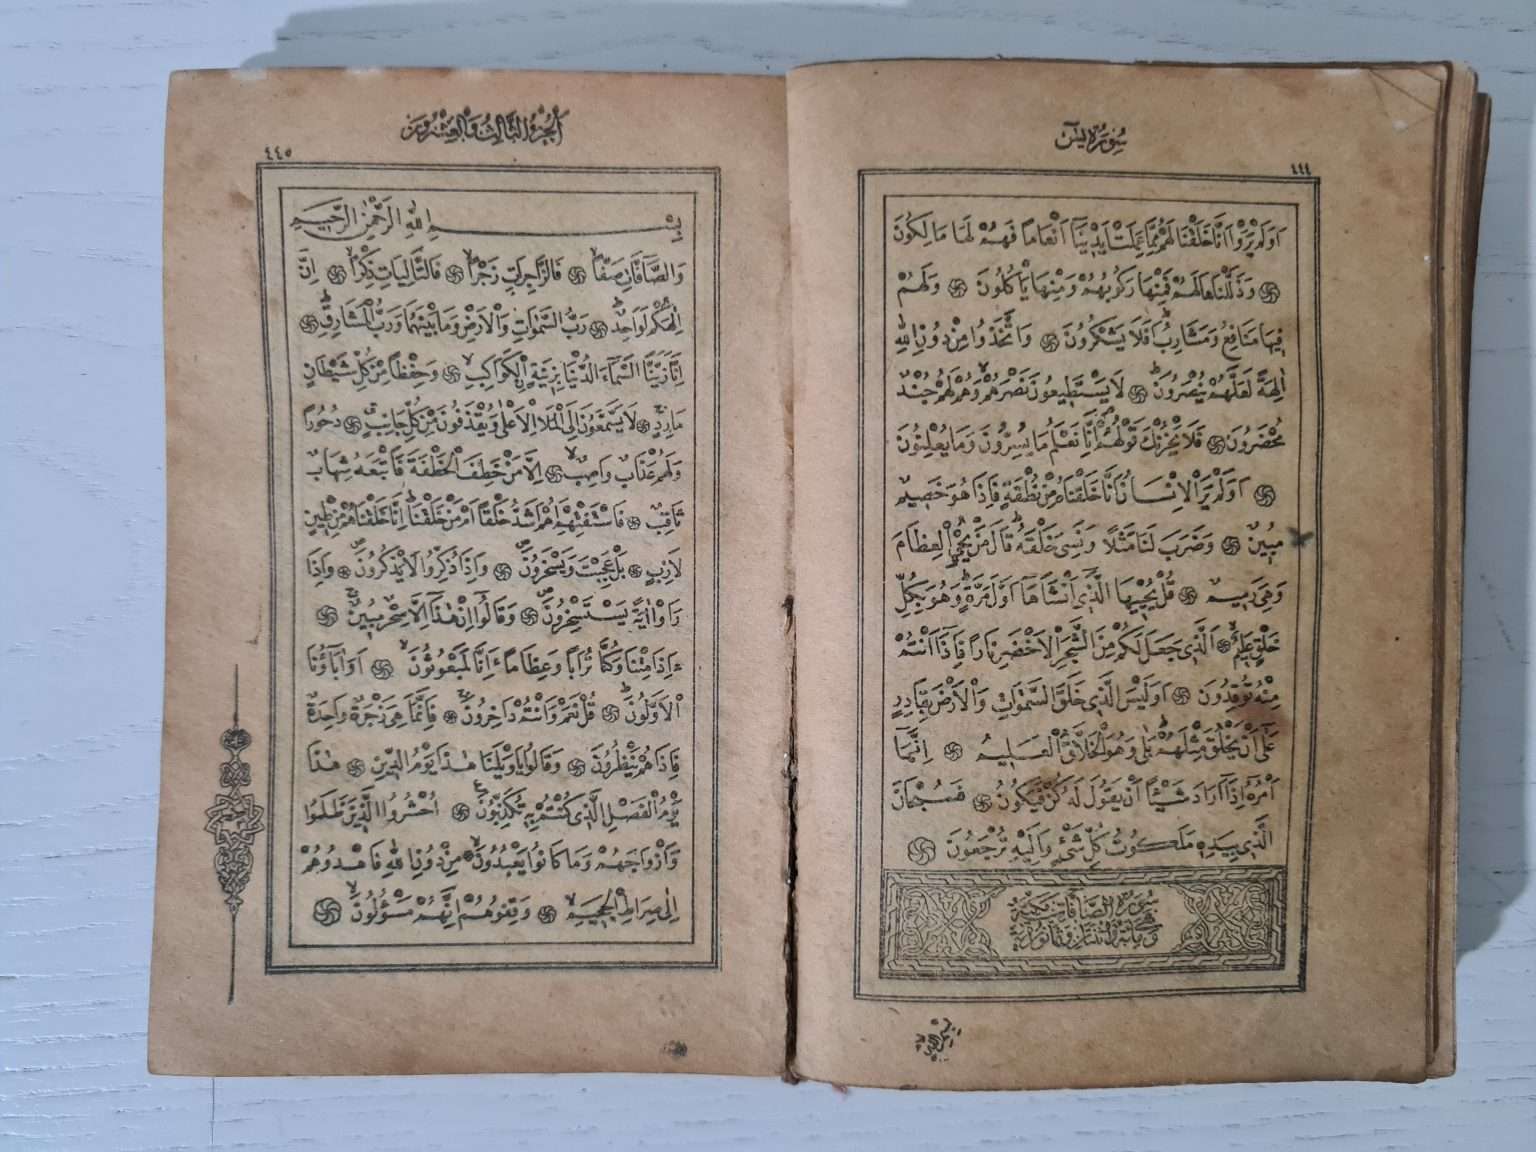 سُورَةُ يٰسٓ
٤٤٤
اَوَلَمْ يَرَوْا اَنَّا خَلَقْنَا لَهُمْ مِمَّا عَمِلَتْ اَيْدٖينَآ اَنْعَامًا فَهُمْ لَهَا مَالِكُونَ
۞ وَذَلَّلْنَاهَا لَهُمْ فَمِنْهَا رَكُوبُهُمْ وَمِنْهَا يَأْكُلُونَ ۞ وَلَهُمْ
فٖيهَا مَنَافِعُ وَمَشَارِبُ اَفَلَا يَشْكُرُونَ ۞ وَاتَّخَذُوا مِنْ دُونِ اللّٰهِ
اٰلِهَةً لَعَلَّهُمْ يُنْصَرُونَ ۞ لَا يَسْتَطٖيعُونَ نَصْرَهُمْ وَهُمْ لَهُمْ جُنْدٌ
مُحْضَرُونَ ۞ فَلَا يَحْزُنْكَ قَوْلُهُمْ اِنَّا نَعْلَمُ مَا يُسِرُّونَ وَمَا يُعْلِنُونَ
۞ اَوَلَمْ يَرَ الْاِنْسَانُ اَنَّا خَلَقْنَاهُ مِنْ نُطْفَةٍ فَاِذَا هُوَ خَصٖيمٌ
مُبٖينٌ ۞ وَضَرَبَ لَنَا مَثَلًا وَنَسِىَ خَلْقَهُ قَالَ مَنْ يُحْيِى الْعِظَامَ
وَهِىَ رَمٖيمٌ ۞ قُلْ يُحْيٖيهَا الَّذٖٓى اَنْشَاَهَآ اَوَّلَ مَرَّةٍ وَهُوَ بِكُلِّ
خَلْقٍ عَلٖيمٌ ۞ اَلَّذٖى جَعَلَ لَكُمْ مِنَ الشَّجَرِ الْاَخْضَرِ نَارًا فَاِذَآ اَنْتُمْ
مِنْهُ تُوقِدُونَ ۞ اَوَلَيْسَ الَّذٖى خَلَقَ السَّمٰوَاتِ وَالْاَرْضَ بِقَادِرٍ
عَلٰٓى اَنْ يَخْلُقَ مِثْلَهُمْ بَلٰى وَهُوَ الْخَلَّاقُ الْعَلٖيمُ ۞ اِنَّمَآ
اَمْرُهُٓ اِذَآ اَرَادَ شَيْئًا اَنْ يَقُولَ لَهُ كُنْ فَيَكُونُ ۞ فَسُبْحَانَ
الَّذٖى بِيَدِهٖ مَلَكُوتُ كُلِّ شَىْءٍ وَاِلَيْهِ تُرْجَعُونَ ۞
سُورَةُ الصَّافَّاتِ مَكِّيَّةٌ
وَهِىَ مِائَةٌ وَاثْنَتَانِ وَثَمَانُونَ اٰيَةً
اَلْجُزْءُ الثَّالِثُ وَالْعِشْرُونَ
٤٤٥
بِسْمِ اللّٰهِ الرَّحْمٰنِ الرَّحٖيمِ
وَالصَّٓافَّاتِ صَفًّا ۞ فَالزَّاجِرَاتِ زَجْرًا ۞ فَالتَّالِيَاتِ ذِكْرًا ۞ اِنَّ
اِلٰهَكُمْ لَوَاحِدٌ ۞ رَبُّ السَّمٰوَاتِ وَالْاَرْضِ وَمَا بَيْنَهُمَا وَرَبُّ الْمَشَارِقِ ۞
اِنَّا زَيَّنَّا السَّمَٓاءَ الدُّنْيَا بِزٖينَةٍ الْكَوَاكِبِ ۞ وَحِفْظًا مِنْ كُلِّ شَيْطَانٍ
مَارِدٍ ۞ لَا يَسَّمَّعُونَ اِلَى الْمَلَاِ الْاَعْلٰى وَيُقْذَفُونَ مِنْ كُلِّ جَانِبٍ ۞ دُحُورًا
وَلَهُمْ عَذَابٌ وَاصِبٌ ۞ اِلَّا مَنْ خَطِفَ الْخَطْفَةَ فَاَتْبَعَهُ شِهَابٌ
ثَاقِبٌ ۞ فَاسْتَفْتِهِمْ اَهُمْ اَشَدُّ خَلْقًا اَمْ مَنْ خَلَقْنَا اِنَّا خَلَقْنَاهُمْ مِنْ طٖينٍ
لَازِبٍ ۞ بَلْ عَجِبْتَ وَيَسْخَرُونَ ۞ وَاِذَا ذُكِّرُوا لَا يَذْكُرُونَ ۞ وَاِذَا
رَاَوْا اٰيَةً يَسْتَسْخِرُونَ ۞ وَقَالُٓوا اِنْ هٰذَٓا اِلَّا سِحْرٌ مُبٖينٌ ۞
ءَاِذَا مِتْنَا وَكُنَّا تُرَابًا وَعِظَامًا ءَاِنَّا لَمَبْعُوثُونَ ۞ اَوَاٰبَٓاؤُنَا
الْاَوَّلُونَ ۞ قُلْ نَعَمْ وَاَنْتُمْ دَاخِرُونَ ۞ فَاِنَّمَا هِىَ زَجْرَةٌ وَاحِدَةٌ
فَاِذَا هُمْ يَنْظُرُونَ ۞ وَقَالُوا يَا وَيْلَنَا هٰذَا يَوْمُ الدّٖينِ ۞ هٰذَا
يَوْمُ الْفَصْلِ الَّذٖى كُنْتُمْ بِهٖ تُكَذِّبُونَ ۞ اُحْشُرُوا الَّذٖينَ ظَلَمُوا
وَاَزْوَاجَهُمْ وَمَا كَانُوا يَعْبُدُونَ ۞ مِنْ دُونِ اللّٰهِ فَاهْدُوهُمْ
اِلٰى صِرَاطِ الْجَحٖيمِ ۞ وَقِفُوهُمْ اِنَّهُمْ مَسْؤُلُونَ ۞